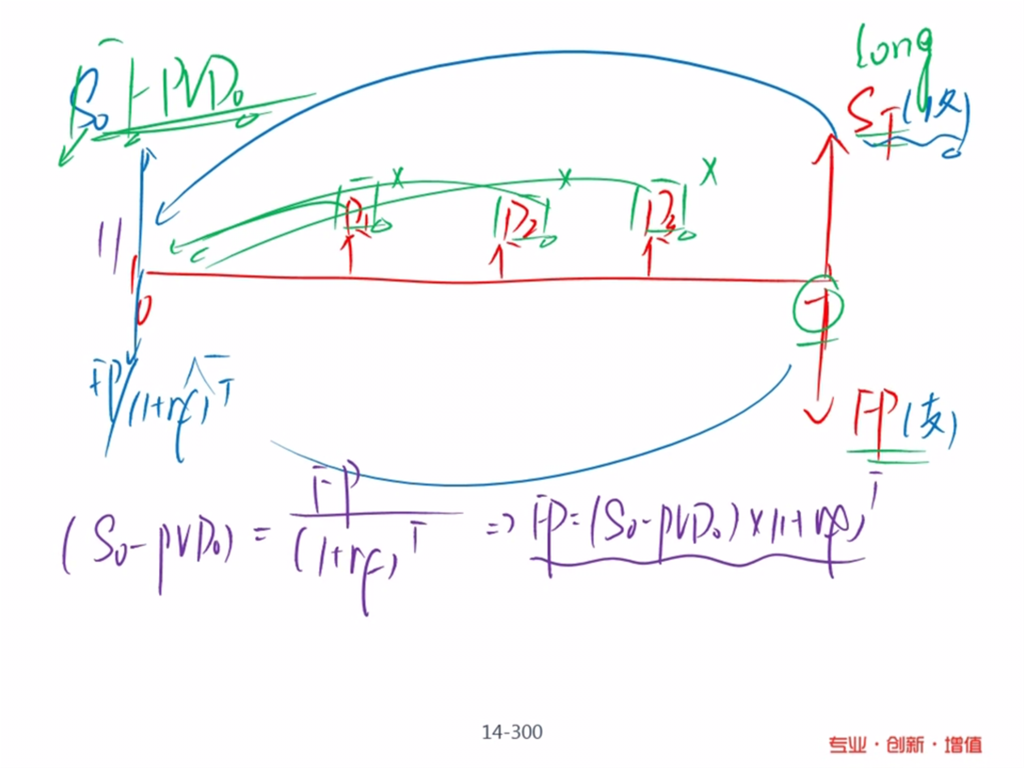 long
S₀ - PVD₀
S_T (收)
D₁ x
D₂ x
D₃ x
||
0
T
FP/(1+rf)^T
FP (支)
(S₀-PVD₀) = FP/(1+rf)^T => FP=(S₀-PVD₀)×(1+rf)^T
14-300
专业·创新·增值